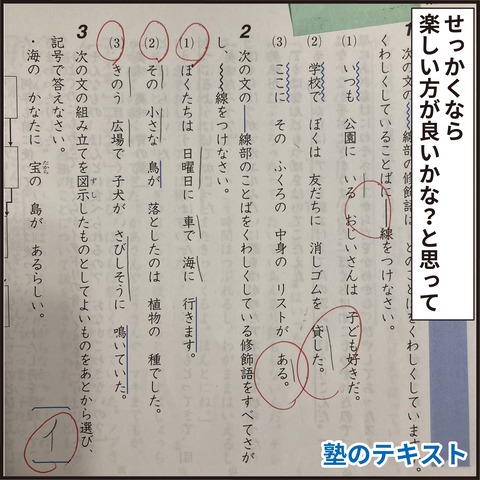 せっかくなら
楽しい方が良いかな?と思って
1 次の文の 線部の修飾語は、どのことばをくわしくしていますか。
くわしくしていることばに 線をつけなさい。
(1) いつも 公園に いる おじいさんは 子ども好きだ。
(2) 学校で ぼくは 友だちに 消しゴムを 貸した。
(3) ここに その ふくろの 中身の リストが ある。
2 次の文の 線部のことばをくわしくしている修飾語をすべてさが
し、 線をつけなさい。
(1) ぼくたちは 日曜日に 車で 海に 行きます。
(2) その 小さな 鳥が 落としたのは 植物の 種でした。
(3) きのう 広場で 子犬が さびしそうに 鳴いていた。
3 次の文の組み立てを図示したものとしてよいものをあとから選び、
ずし
記号で答えなさい。
・海の かなたに 宝の 島が あるらしい。
たから
イ
塾のテキスト